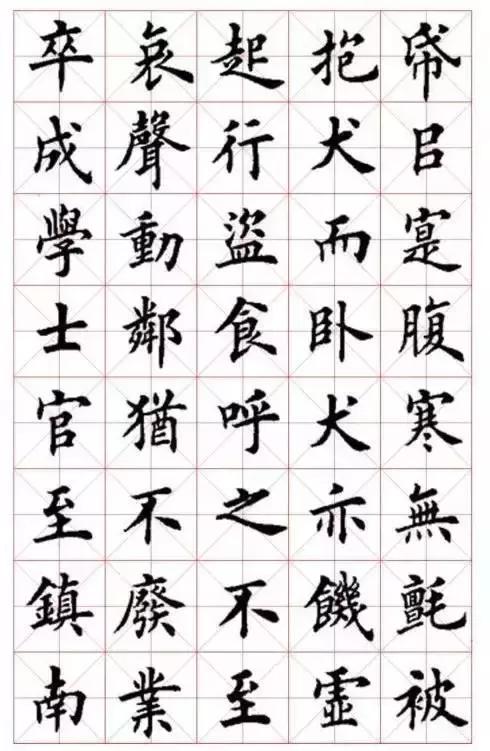 帋㠯寔腹寒無氈被
抱犬而卧犬亦饑虛
起行盜食呼之不至
哀聲動鄰猶不廢業
卒成學士官至鎮南